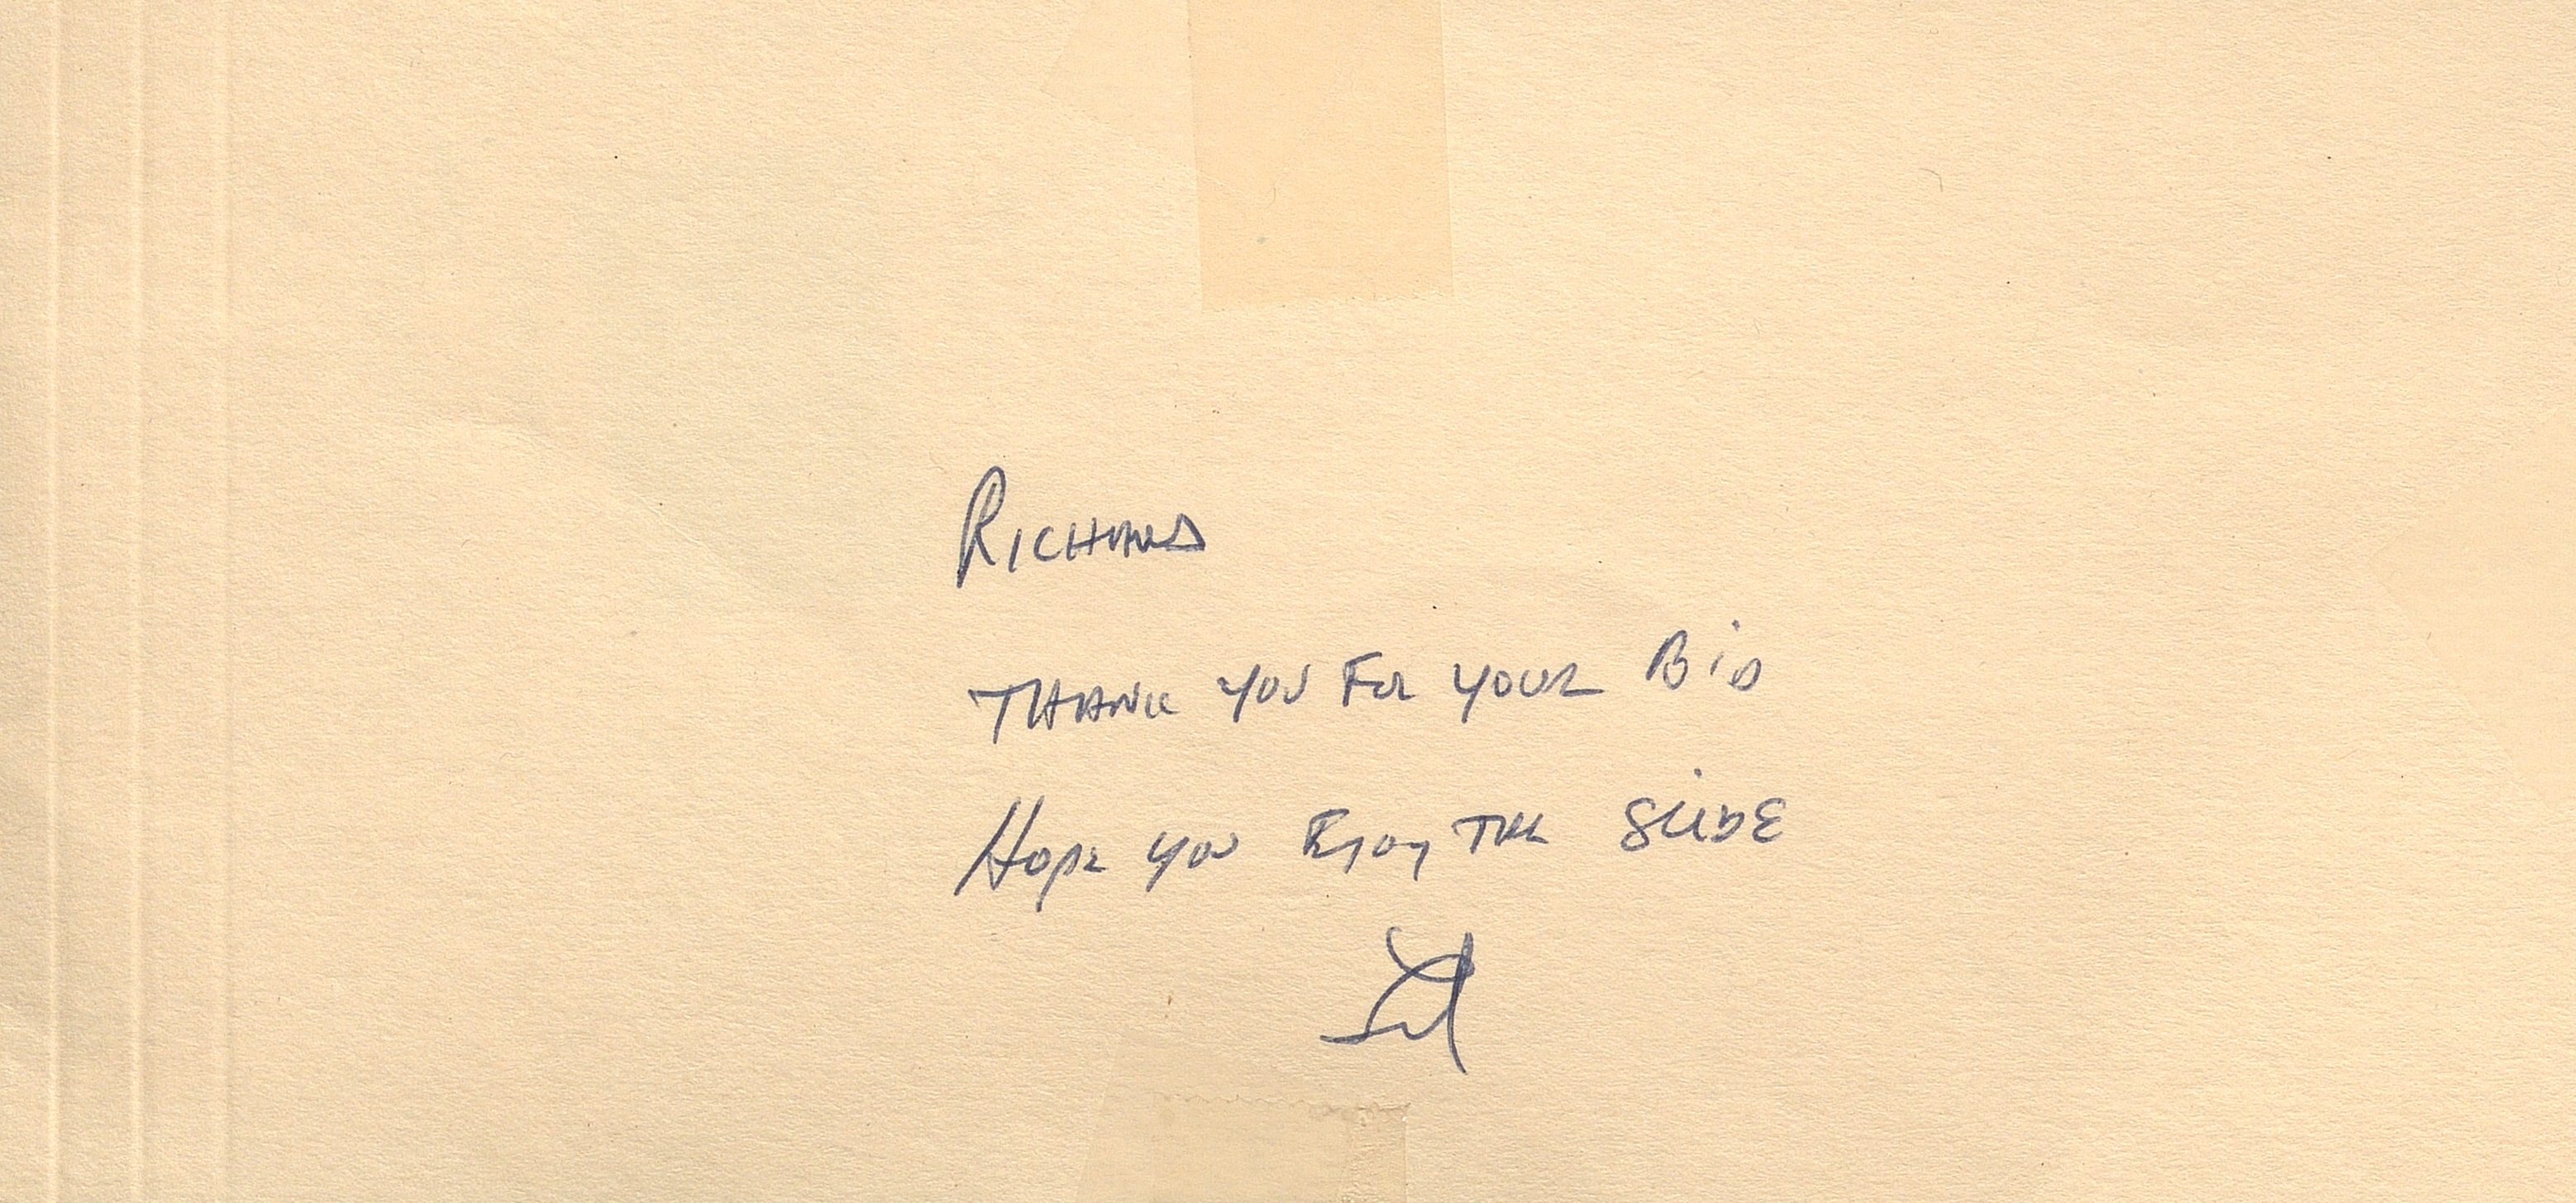 RICHARD
THANK YOU FOR YOUR BiD
Hope you Enjoy THE SLiDE